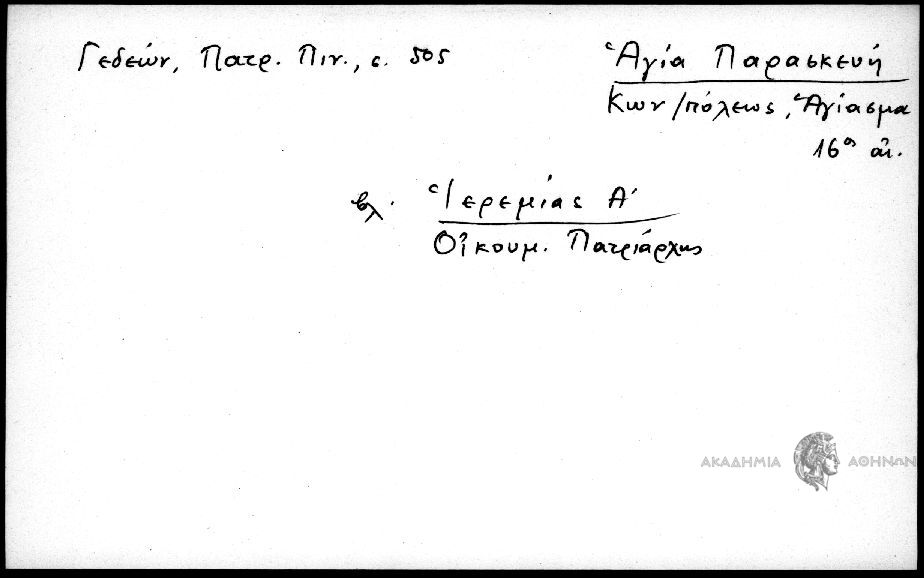 Γεδεών, Πατρ. Πιν., σ. 505
Ἁγία Παρασκευή
Κων/πόλεως, Ἁγίασμα
16ος αἰ.
βλ. Ἱερεμίας Α'
Οἰκουμ. Πατριάρχης
ΑΚΑΔΗΜΙΑ ΑΘΗΝΩΝ